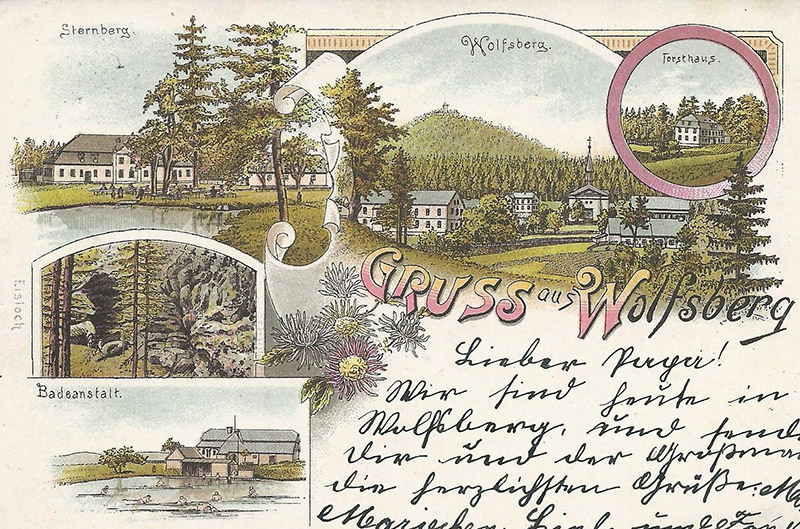 Sternberg.
Wolfsberg.
Forsthaus.
Eisloch
Badeanstalt.
Gruss aus Wolfsberg
Lieber Papa!
Wir sind heute in
Wolfsberg, und sende
Dir und der Großma
die herzlichsten Grüße.